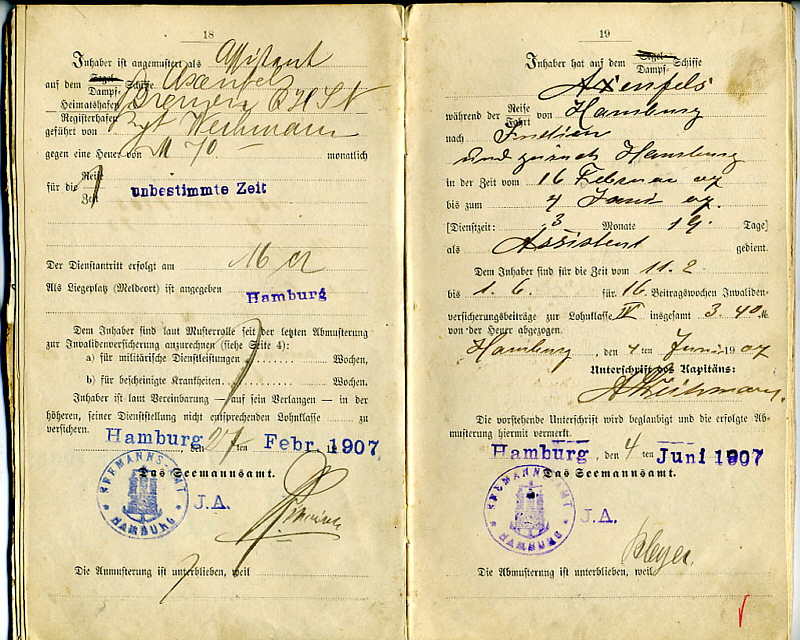 18
Inhaber ist angemustert als Assistent
auf dem Segel- Dampf- Schiffe Axenfels
Heimatshafen Bremen Q H S N
Registerhafen
geführt von Weihmann
gegen eine Heuer von M 70 – monatlich
für die Reise Zeit unbestimmte Zeit
Der Dienstantritt erfolgt am 16
Als Liegeplatz (Meldeort) ist angegeben
Hamburg
Dem Inhaber sind laut Musterrolle seit der letzten Abmusterung
zur Invalidenversicherung anzurechnen (siehe Seite 4):
a) für militärische Dienstleistungen Wochen,
b) für bescheinigte Krankheiten Wochen.
Inhaber ist laut Vereinbarung – auf sein Verlangen – in der
höheren, seiner Dienststellung nicht entsprechenden Lohnklasse zu
versichern.
Hamburg den ten Febr. 1907
Das Seemannsamt.
SEEMANNS-AMT HAMBURG
J.A.
Die Anmusterung ist unterblieben, weil
19
Inhaber hat auf dem Segel- Dampf- Schiffe
Axenfels
während der Reise Fahrt von Hamburg
nach Indien
und zurück Hamburg
in der Zeit vom 16 Februar 07
bis zum 4 Juni 07.
[Dienstzeit: 3 Monate 19. Tage]
als Assistent gedient.
Dem Inhaber sind für die Zeit vom 11. 2
bis 1. 6. für 16. Beitragswochen Invaliden-
versicherungsbeiträge zur Lohnklasse IV insgesamt 3. 40 M.
von der Heuer abgezogen.
Hamburg, den 4 ten Juni 1907
Unterschrift des Kapitäns:
Weihmann.
Die vorstehende Unterschrift wird beglaubigt und die erfolgte Ab-
musterung hiermit vermerkt.
Hamburg, den 4 ten Juni 1907
Das Seemannsamt.
SEEMANNS-AMT HAMBURG
J.A.
Die Abmusterung ist unterblieben, weil